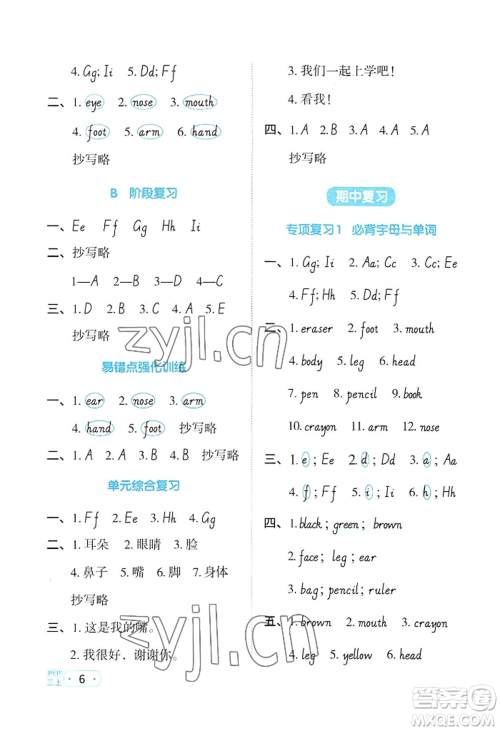 4. Gg; Ii　5. Dd; Ff
二、1. eye　2. nose　3. mouth
4. foot　5. arm　6. hand
抄写略
B　阶段复习
一、Ee　Ff　Gg　Hh　Ii
二、抄写略
1—A　2—D　3—B　4—C
三、1. D　2. C　3. B　4. A　5. E
易错点强化训练
一、1. ear　2. nose　3. arm
4. hand　5. foot　抄写略
二、1. A　2. A　3. B　4. B
单元综合复习
一、1. Ff　2. Ee　3. Hh　4. Gg
二、1. 耳朵　2. 眼睛　3. 脸
4. 鼻子　5. 嘴　6. 脚　7. 身体
抄写略
三、1. 这是我的嘴。
2. 我很好，谢谢你。
3. 我们一起上学吧！
4. 看我！
四、1. A　2. B　3. B　4. A　5. A
抄写略
期中复习
专项复习1　必背字母与单词
一、1. Gg; Ii　2. Aa; Cc
3. Dd; Ee; Gg
4. Ff; Hh; Ii　5. Bb; Cc
二、1. eraser　2. foot　3. mouth
4. body　5. leg　6. head
7. hand　8. pencil
9. pen　10. crayon
11. ruler　12. arm
三、1. e; Ee　2. d; Dd　3. a; Aa
4. f; Ff　5. i; Ii　6. h; Hh
四、1. black; green; brown
2. face; leg; ear
3. bag; pencil; ruler
五、1. brown　2. mouth　3. crayon
4. leg　5. yellow　6. head
PEP
二上
6
zyjl.cn
zyjl.cn
答案圈
MXQE.COM